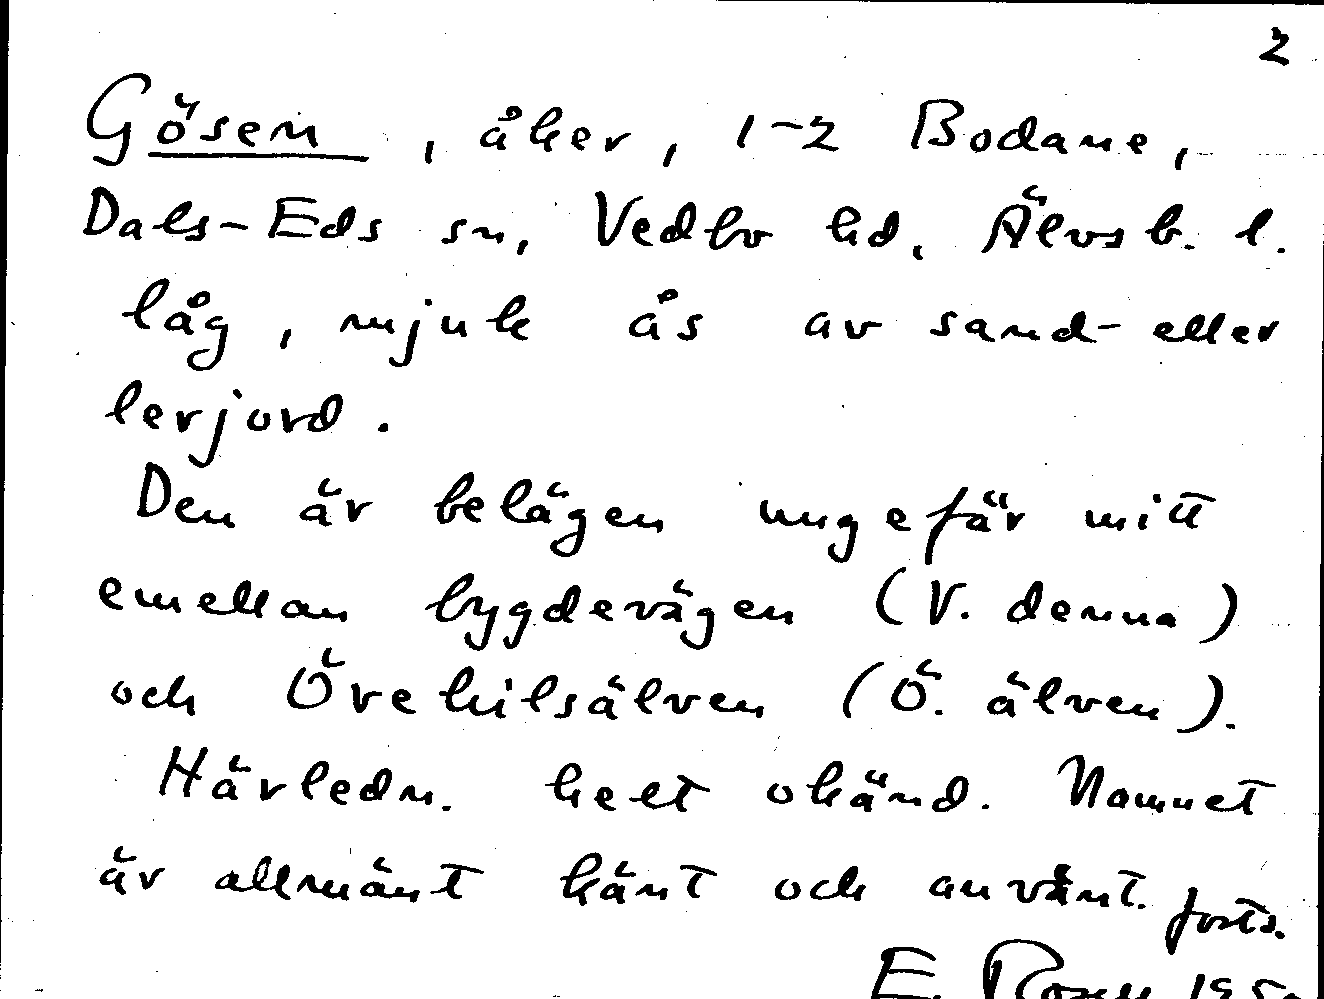 2
Gösen, åker, 1-2 Bodane,
Dals-Eds sn, Vedbo hd, Älvsb. l.
låg, mjuk ås av sand- eller
lerjord.
Den är belägen ungefär mitt
emellan bygdevägen (V. denna)
och Örekilsälven (Ö. älven).
Härledn. helt okänd. Namnet
är allmänt känt och använt. forts.
E.